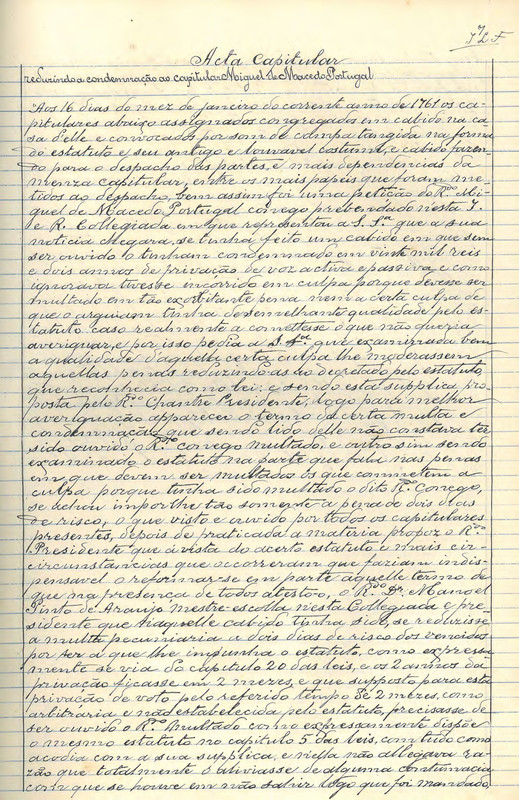 Acta Capitular
reduzindo a condemnação ao capitular Miguel de Macedo Portugal
Aos 16 dias do mez de janeiro do corrente anno de 1761 os ca-
pitulares abaixo assignados congregados em cabido na ca-
sa delle e convocados por som de campa tangida na forma
do estatuto e seu antigo e louvavel costume, e cabido fazen-
do para o despacho das partes, e mais dependencias da
meza capitular, entre os mais papeis que foram me-
tidos ao despacho, bem assim foi uma petição do R.do Mi-
guel de Macedo Portugal conego prebendado nesta I.
e R. Collegiada em que representou a S. S.a que a sua
noticia chegara, se tinha feito um cabido em que sem
ser ouvido o tinham condemnado em vinte mil reis
e dois annos de privação de voz activa e passiva, e como
ignorava tivesse incorrido em culpa porque devesse ser
multado em tão exorbitante pena nem a certa culpa de
que o arguiam tinha desemelhante qualidade pelo es-
tatuto caso realmente a comettasse o que não queria
averiguar, e por isso pedia a S. S.a que examinada bem
a qualidade d'aquella certa culpa lhe moderassem
aquellas penas reduzindo-as ao decretado pelo estatuto,
que reconhecia como lei: e sendo esta supplica pro-
posta pelo R.do Chantre Presidente, logo para melhor
averiguação appareceo o termo da certa multa e
condemnação que sendo lido delle não constava ter
sido ouvido o R.do conego multado, e outro sim sendo
examinado o estatuto na parte que fala nas penas
em que devem ser multados os que commetem a
culpa porque tinha sido multado o dito R.do Conego,
se achou impor-lhe tão somente a pena de dois dias
de risco, o que visto e ouvido por todos os capitulares
presentes, depois de praticada a materia propoz o R.do
Presidente que á vista do certo estatuto e mais cir-
circumstancias que occorreram que faziam indis-
pensavel o reformar-se em parte aquelle termo de
que na presença de todos atestou, o R.do Dr. Manoel
Pinto de Araujo mestre-escolla nesta Collegiada e pre-
sidente que naquelle cabido tinha sido, se reduzisse
a multa pecuniaria a dois dias de risco dos vencidos
por ser a que lhe impunha o estatuto, como expressa-
mente se via do capitulo 20 das leis, e os 2 annos da
privação ficasse em 2 mezes, e que supposto para esta
privação de voto pelo referido tempo de 2 mezes, como
arbitraria e não estabelecida pelo estatuto, precisasse de
ser ouvido o R.do Multado como expressamente dispõe
o mesmo estatuto no capitulo 5 das leis, com tudo como
acodia com a sua supplica, e nella não allegava ra-
zão que totalmente o aliviasse de alguma contumacia
com que se houve em não sahir logo que foi mandado,